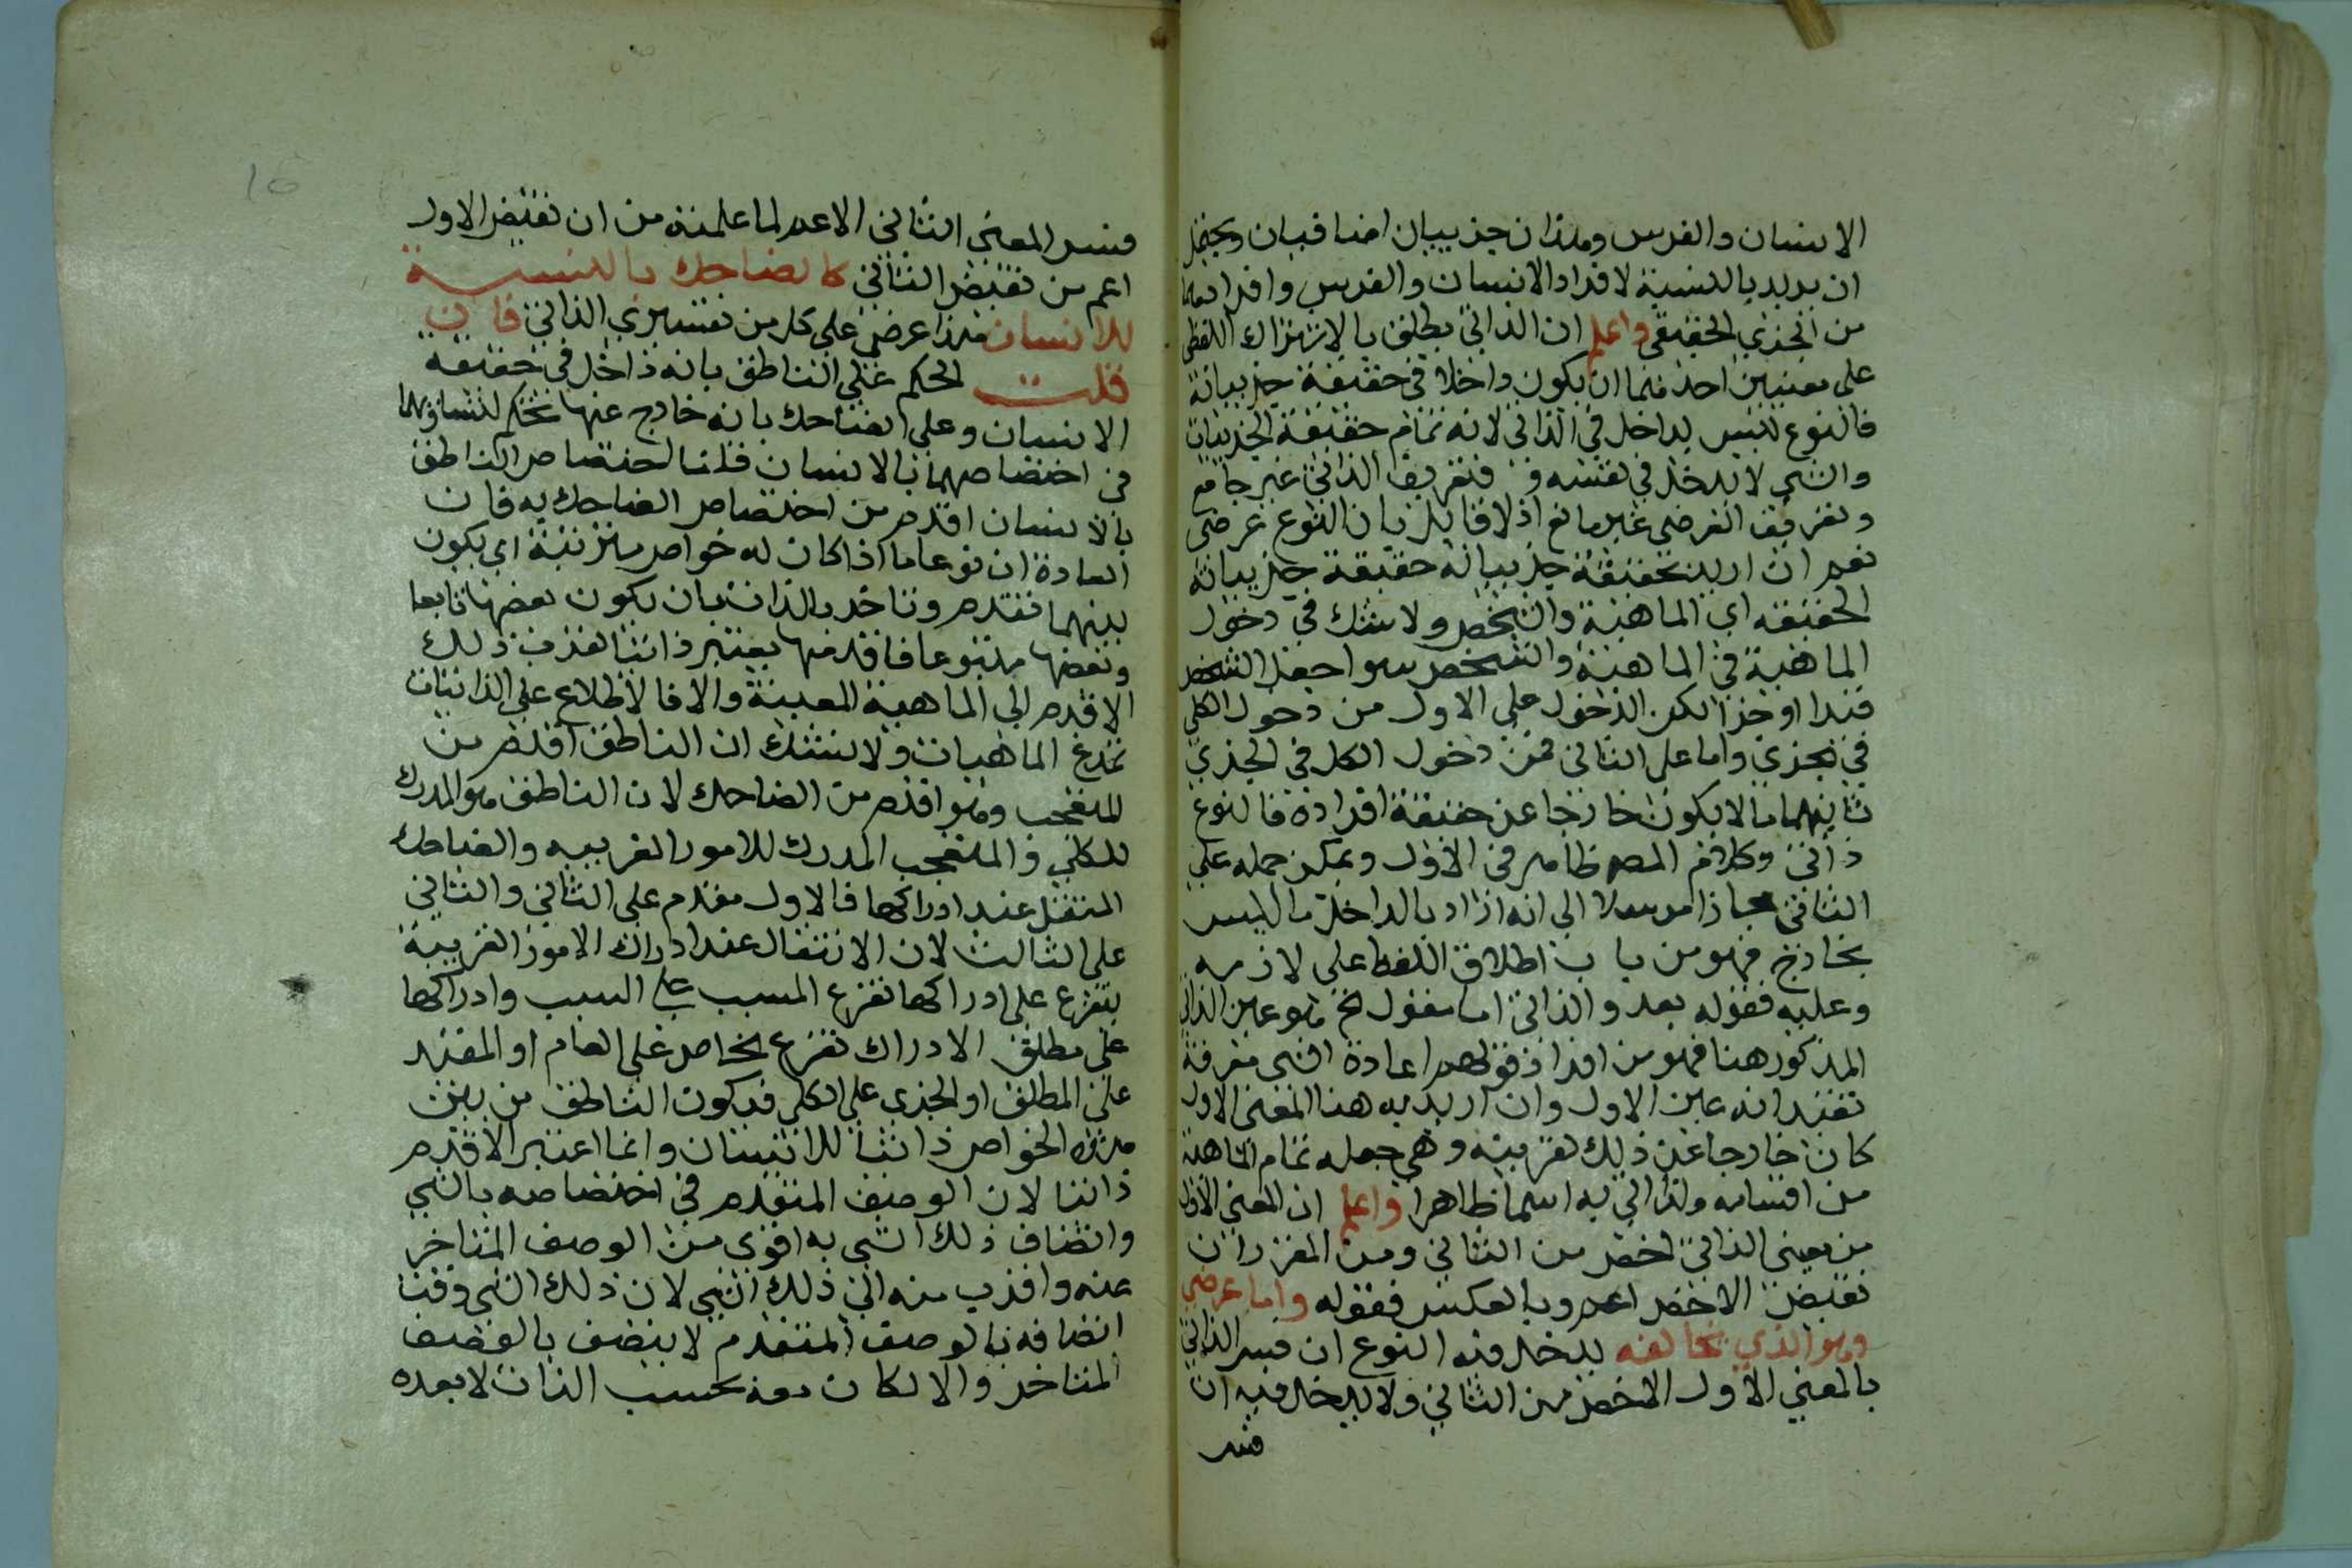 الانسان والفرس وهذان جزييان اضافيان ويحتمل
ان يريد بالنسبة لافراد الانسان والفرس وافرادهما
من الجزي الحقيقي واعلم ان الذاتي يطلق بالاشتراك اللفظي
على معنيين احدهما ان يكون داخلا في حقيقة جزيياته
فالنوع ليس بداخل في الذاتي لانه تمام حقيقة الجزييات
والشي لا يدخل في نفسه فتعريف الذاتي غير جامع
وتعريف العرضي غير مانع اذ لا قايل بان النوع عرضي
نعم ان اريد بحقيقة جزيياته حقيقة جزيياته
الحقيقه اي الماهية والتشخص ولا شك في دخول
الماهية في الماهية والتشخص سوا جعل التشخص
قيدا او جزا لكن الدخول على الاول من دخول الكلي
في الجزي واما على الثاني فمن دخول الكل في الجزي
ثانيهما ما لا يكون خارجا عن حقيقة افراده فالنوع
ذاتي وكلام المصـ ظاهر في الاول ويمكن حمله على
الثاني مجازا مرسلا الى انه اراد بالداخل ما ليس
بخارج فهو من باب اطلاق اللفظ على لازمه
وعليه فقوله بعد والذاتي اما مقول الخ هو عين الذاتي
المذكور هنا فهو من افراد قولهم اعادة الشي معرفة
تفيد انه عين الاول وان اريد به هنا المعنى الاول
كان خارجا عن ذلك لقرينه وهي جعله تمام الماهية
من اقسامه ولذا اتي به اسما ظاهرا واعلم ان المعني الاول
من معنى الذاتي اخص من الثاني ومن المقرر ان
نقيض الاخص اعم وبالعكس فقوله واما عرضي
وهو الذي يخالفه يدخل فيه النوع ان فسر الذاتي
بالمعني الاول الاخص من الثاني ولا يدخل فيه ان
فسر
فسر المعنى الثاني الاعم لما علمته من ان نقيض الاول
اعم من نقيض الثاني كالضاحك بالنسبـــــة
للانسان هذا عرضي على كل من تفسيري الذاتي فان
قلت الحكم على الناطق بانه داخل في حقيقة
الانسان وعلى الضاحك بانه خارج عنها تحكم لتساويهما
في اختصاصهما بالانسان قلنا اختصاص الناطق
بالانسان اقدم من اختصاص الضاحك به فان
العادة ان نوعا ما اذا كان له خواص مترتبة اي يكون
بينهما تقدم وتاخر بالذات بان يكون بعضها تابعا
وبعضها متبوعا فاقدمها يعتبر ذاتيا لقرب ذلك
الاقدم الى الماهية المعينة والا فالاطلاع على الذاتيات
نمدغ الماهيات ولا نشك ان الناطق اقدم من
المتعجب وهو اقدم من الضاحك لان الناطق هو المدرك
للكلي والمتعجب المدرك للامور الغريبه والضاحك
المنفعل عند ادراكها فالاول مقدم على الثاني والثاني
على الثالث لان الانفعال عند ادراك الامور الغريبة
يتفرع على ادراكها تفرع المسبب على السبب وادراكها
على مطلق الادراك تفرع الخاص على العام او المقيد
على المطلق او الجزي على الكلي فيكون الناطق من بين
هذه الخواص ذاتيا للانسان وانما اعتبر الاقدم
ذاتيا لان الوصف المتقدم في اختصاصه بالشي
واتصاف ذلك الشي به اقوى من الوصف المتاخر
عنه واقرب منه الى ذلك الشي لان ذلك الشي وقت
اتصافه بالوصف المتقدم لا يتصف بالوصف
المتاخر والا لكان معه بحسب الذات لا بعده